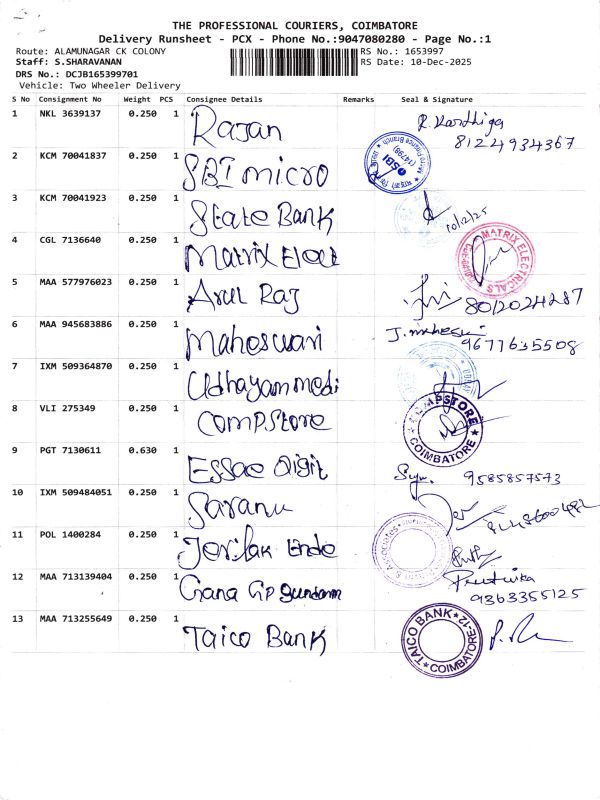 THE PROFESSIONAL COURIERS, COIMBATORE
Delivery Runsheet - PCX - Phone No.:9047080280 - Page No.:1
Route: ALAMUNAGAR CK COLONY
RS No.: 1653997
Staff: S.SHARAVANAN
RS Date: 10-Dec-2025
DRS No.: DCJB165399701
Vehicle: Two Wheeler Delivery
S No Consignment No Weight PCS Consignee Details Remarks Seal & Signature
1 NKL 3639137 0.250 1 Rajan R. Karthiga
8124934367
2 KCM 70041837 0.250 1 SBI micro SBI (14798)
3 KCM 70041923 0.250 1 State Bank 10/2/25
4 CGL 7136640 0.250 1 Matrix Elect MATRIX ELECTRICALS
5 MAA 577976023 0.250 1 Arul Raj 8012024287
6 MAA 945683886 0.250 1 Maheswari
9677635508
7 IXM 509364870 0.250 1 Udhayam medi
8 VLI 275349 0.250 1 CompStore COMPSTORE COIMBATORE
9 PGT 7130611 0.630 1 Essae Digit 9585857573
10 IXM 509484051 0.250 1 Saranu
11 POL 1400284 0.250 1
12 MAA 713139404 0.250 1 Gana Gp Sundaram
9363355125
13 MAA 713255649 0.250 1 Taico Bank TAICO BANK COIMBATORE-12